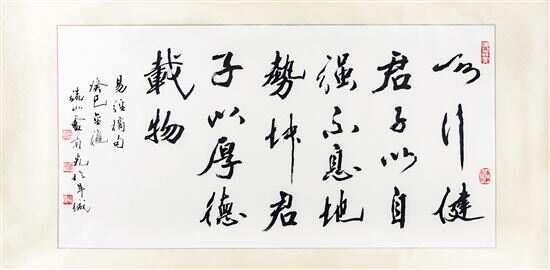 天行健
君子以自
强不息地
勢坤君
子以厚德
載物
易經摘句
癸巳